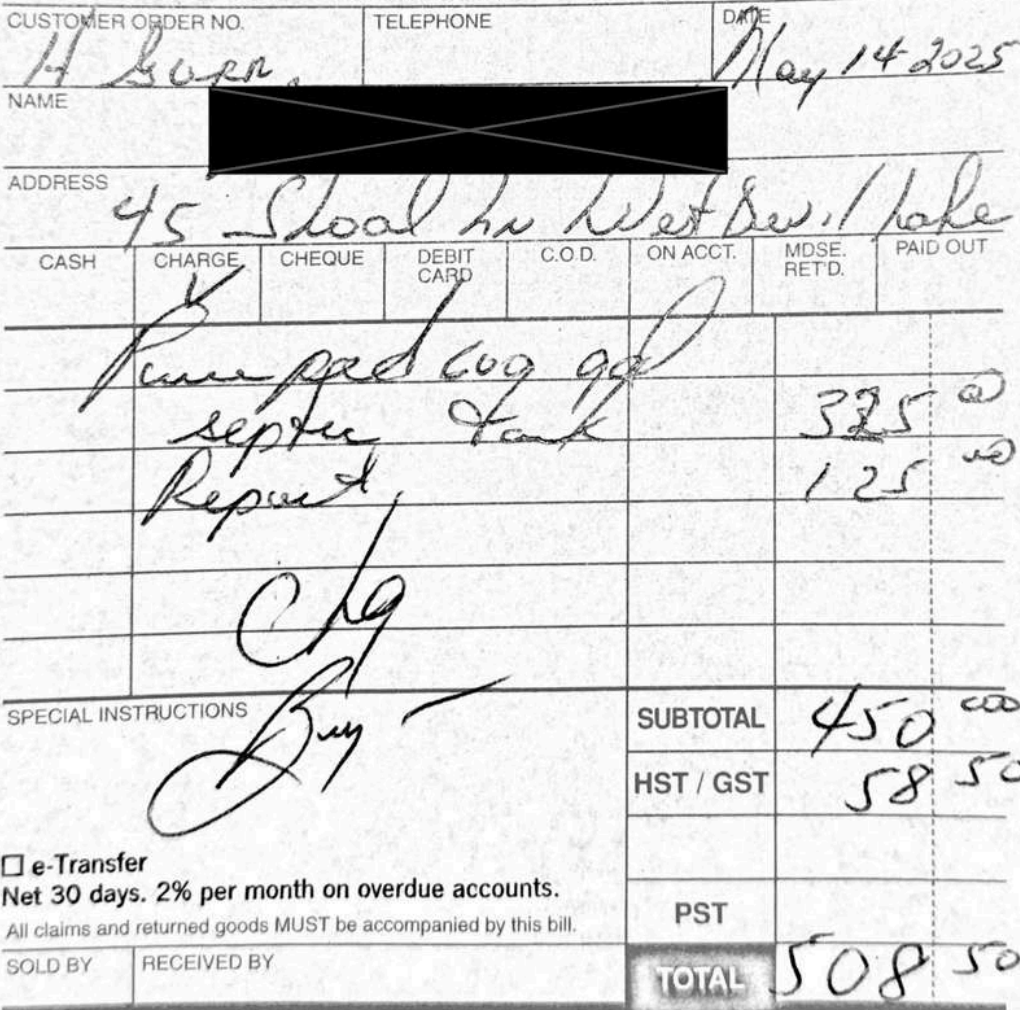 CUSTOMER ORDER NO. TELEPHONE DATE
H May 14 2025
NAME
ADDRESS
45 Shoal Ln
CASH CHARGE CHEQUE DEBIT CARD C.O.D. ON ACCT. MDSE. RET'D. PAID OUT
✓
Pumped gal
septic tank 325 00
Report 125 00
SPECIAL INSTRUCTIONS
SUBTOTAL 450 00
HST / GST 58 50
☐ e-Transfer
Net 30 days. 2% per month on overdue accounts.
All claims and returned goods MUST be accompanied by this bill.
PST
SOLD BY RECEIVED BY
TOTAL 508 50